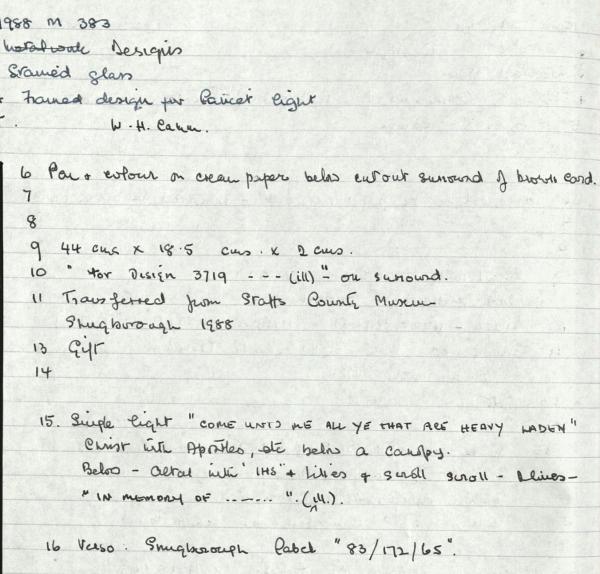 1988 M 383
Designs
Stained glass
Framed design for Lancet light
W. H. Camm.
6 Pen + colour on cream paper below cut out surround of brown card.
7
8
9 44 cms x 18.5 cms. x 2 cms.
10 " for Design 3719 --- (ill) " - on surround.
11 Transferred from Staffs County Museum
Shugborough 1988
13 Gift
14
15. Single light "COME UNTO ME ALL YE THAT ARE HEAVY LADEN"
Christ with Apostles, etc below a canopy.
Below - altar with "IHS" + lilies & scroll scroll -
"IN MEMORY OF ......." (ill.).
16 Verso: Shugborough label "83/172/65".